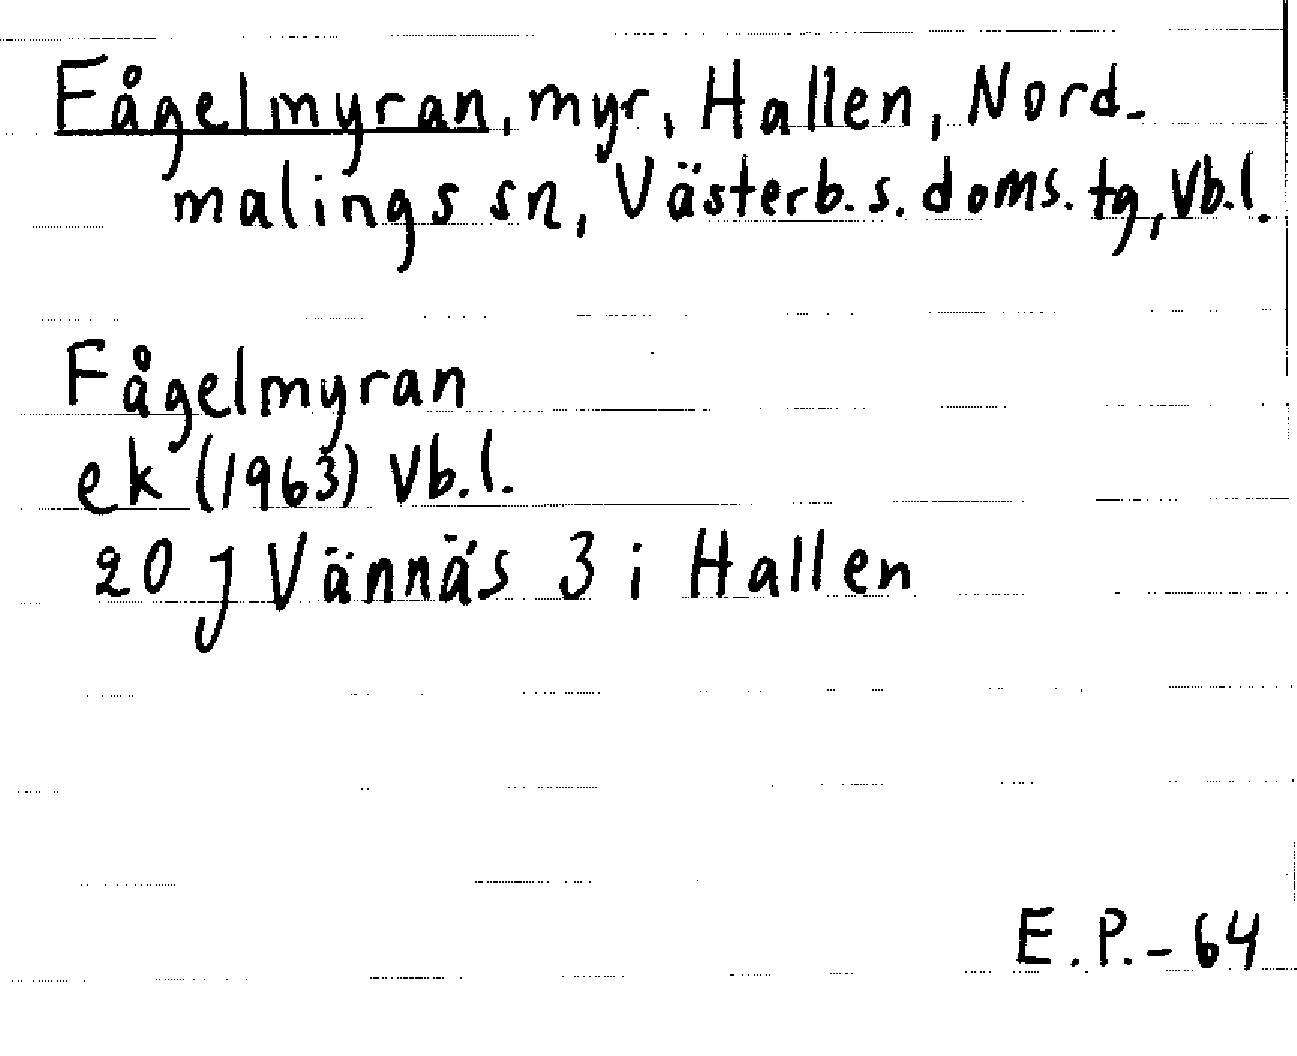 Fågelmyran, myr, Hallen, Nord-
malings sn, Västerb. s. doms. tg, Vb.l.
Fågelmyran
ek (1963) Vb.l.
20 J Vännäs 3 i Hallen
E.P.-64